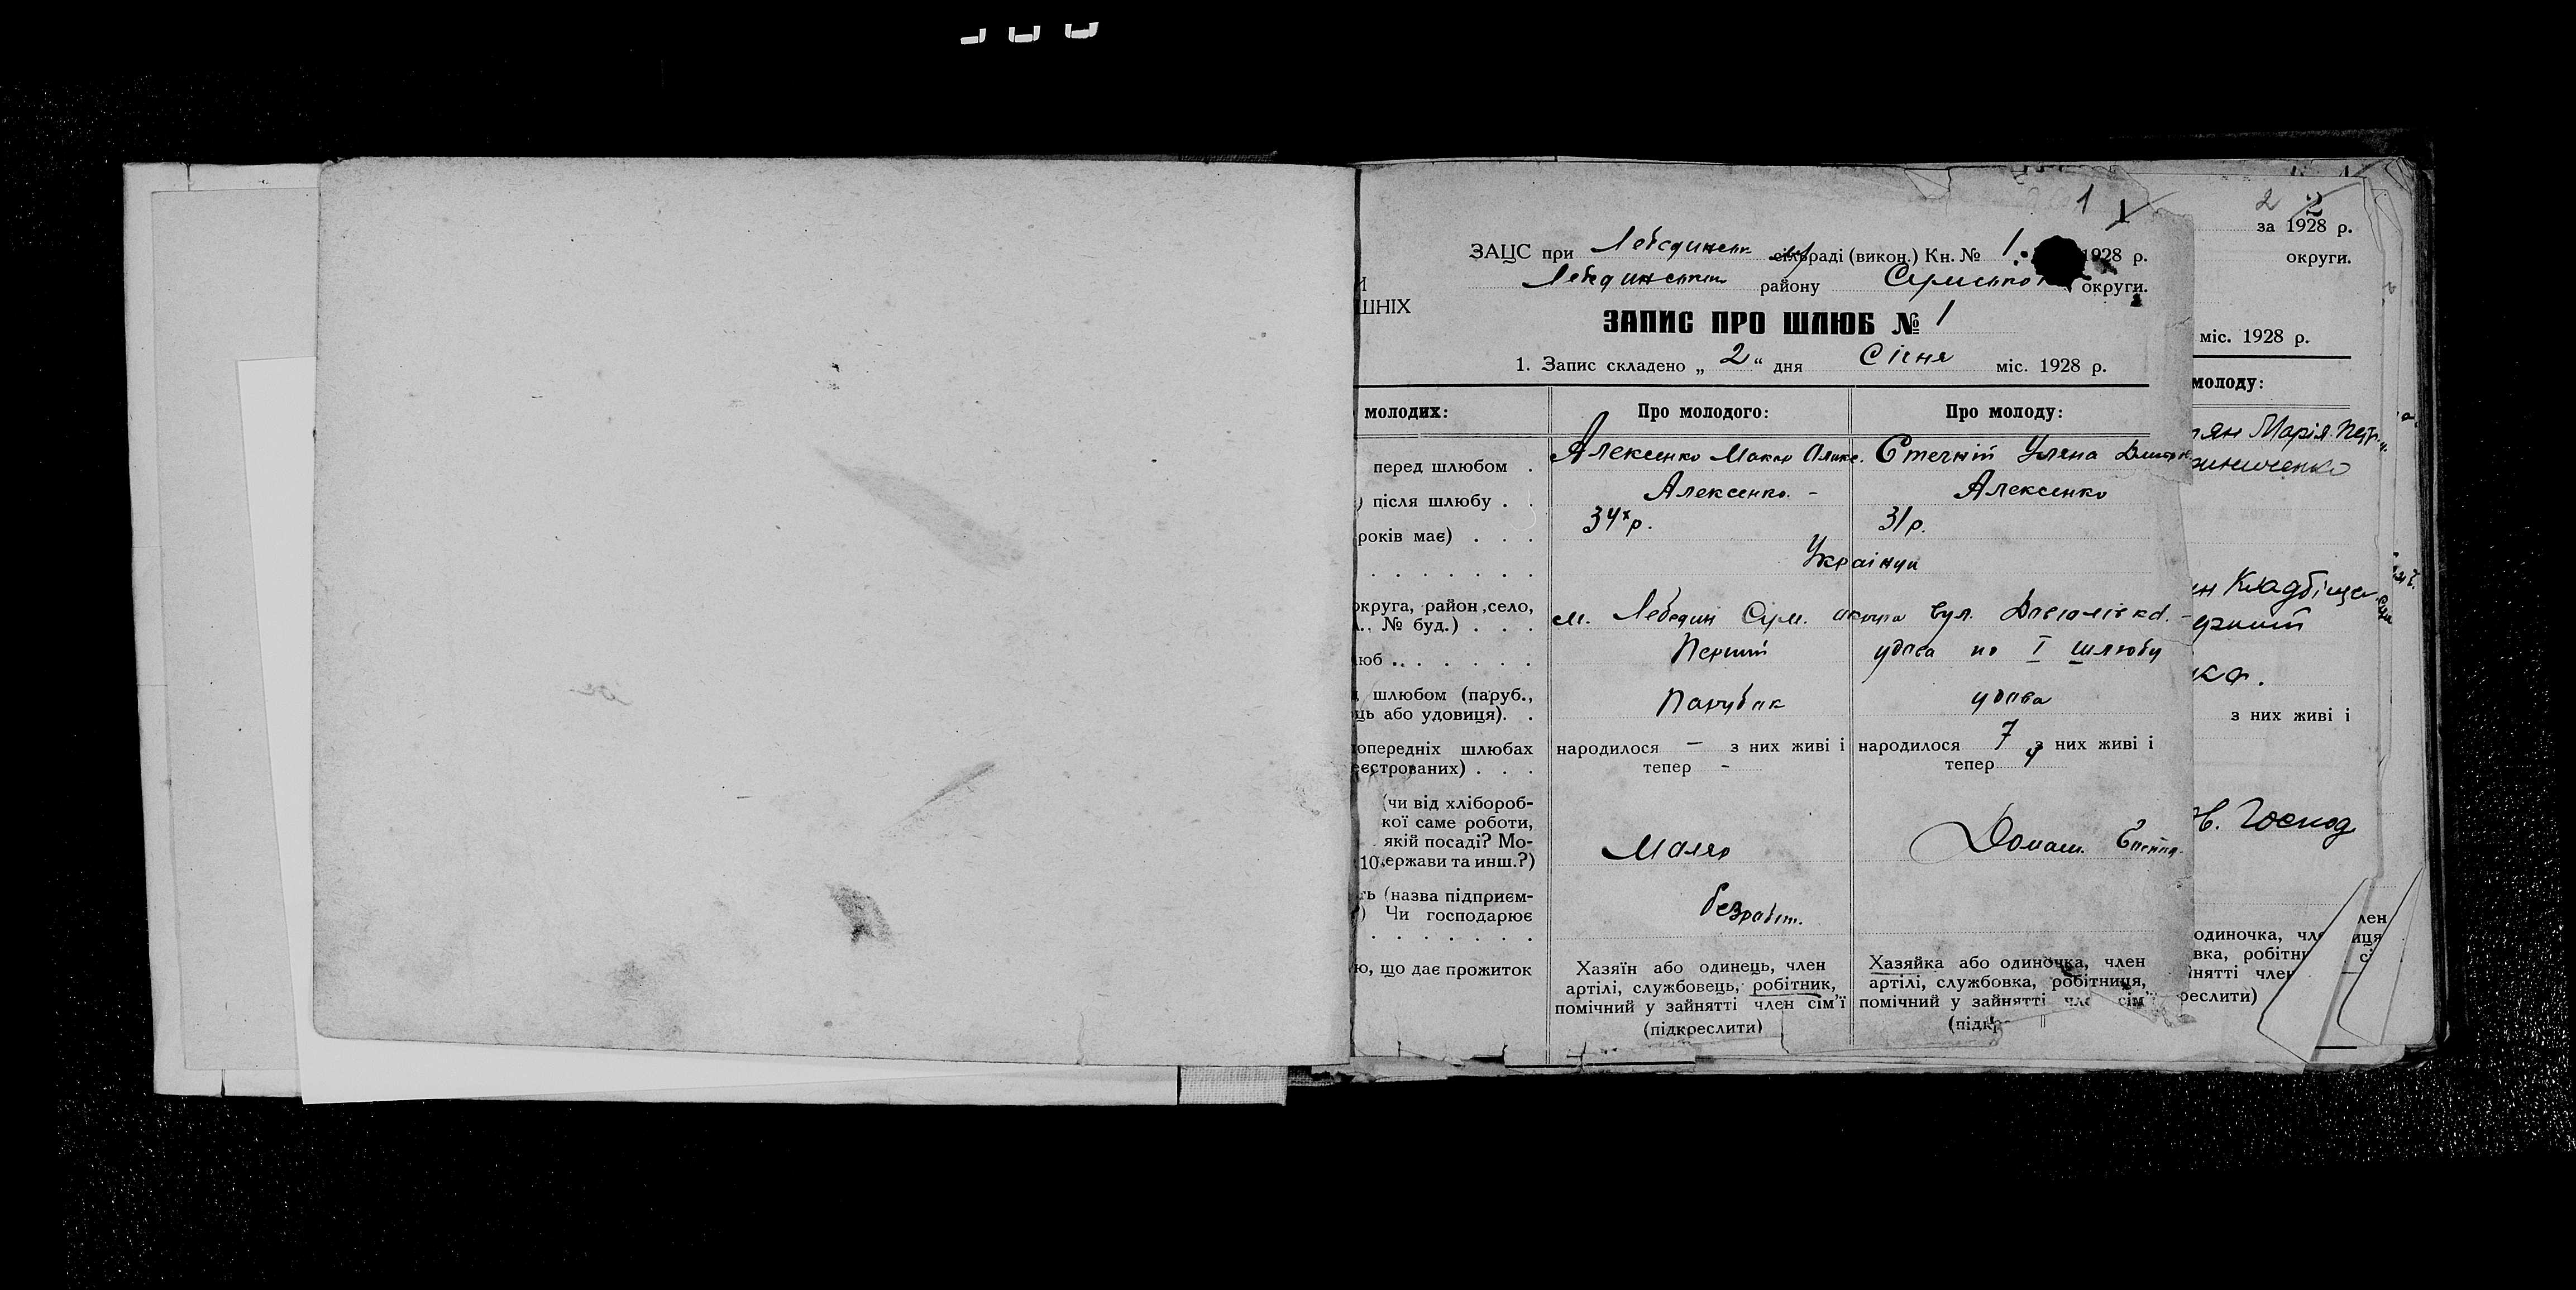 1 1
ЗАЦС при Лебединськ сільраді (викон.) Кн. № 1. 1928 р.
Лебединськ району Сумської округи.
И
ШНІХ
ЗАПИС ПРО ШЛЮБ № 1
1. Запис складено „ 2 “ дня Січня міс. 1928 р.
молодих: Про молодого: Про молоду:
перед шлюбом . Алексенко Макар Олекс. Стечній Уляна Дмитр
) після шлюбу . . Алексенко - Алексенко
років має) . . . 34х р. 31 р.
Українци
округа, район ,село, м. Лебедин Сум. округа вул.
., № буд.) . . .
люб . . . . . . . Перший удова по I шлюбу
д шлюбом (паруб., Парубак удова
ць або удовиця). .
опередніх шлюбах народилося – з них живі і народилося 7 з них живі і
еєстрованих) . . . тепер - тепер 4
(чи від хлібороб-
кої саме роботи,
якій посаді? Мо-
10.ержави та инш.?) Маляр Домаш.
ть (назва підприєм-
) Чи господарює безробіт.
ю, що дає прожиток Хазяїн або одинець, член Хазяйка або одиночка, член
артілі, службовець, робітник, артілі, службовка, робітниця,
помічний у зайнятті член сім'ї помічний у зайнятті чле сім'ї
(підкреслити) (підкр
2 2
за 1928 р.
округи.
міс. 1928 р.
молоду:
ян Марія Петр
ониченко
ин Кладбіще
ерший
ка.
з них живі і
в. Господ
лен
одиночка, чле иця
вка, робітн сі
йнятті член
реслити)